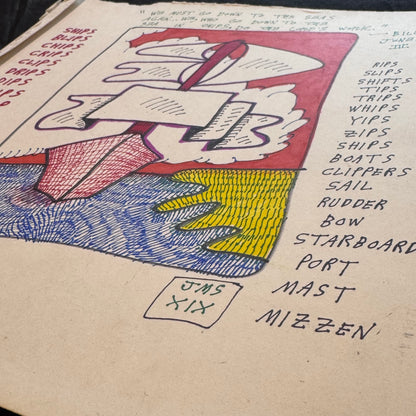 "WE MUST GO DOWN TO THE SEAS
AGAIN.. WE WHO GO DOWN TO THE
SEA IN SHIPS, DO THE LORD'S WORK."
BLIPS
CHIPS
CLIPS
DRIPS
BILL
III
RIPS
SLIPS
SHIFTS
TIPS
TRIPS
WHIPS
YIPS
ZIPS
SHIPS
BOATS
CLIPPERS
SAIL
RUDDER
BOW
STARBOARD
PORT
MAST
MIZZEN
JMS
XIX